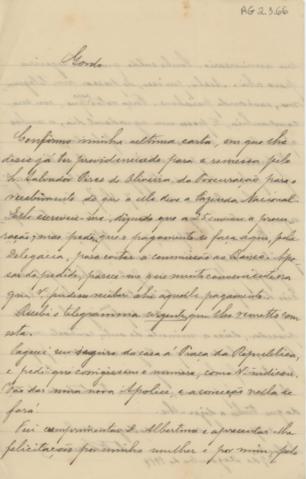 AG 2.3.66
Gordo
Confirmo minha ultima carta, em que lhe
disse já ter providenciado para a remessa pelo
Dr. Salvador Pires de Oliveira, da procuração para o
recebimento do que a elle deve a Fazenda Nacional.
escreveu-me, dizendo que a 25 enviou a procu-
ração; mas pede que o pagamento se faça aqui, pela
Delegacia, para evitar a commissão ao Banco. Ape-
sar do pedido, parece-me que muito conveniente era
que V. pudesse receber ahi aquelle pagamento.
Recebi o telegramma urgente, que lhe remetto com
esta.
Paguei seguro da casa á Praça da Republica,
e pedi que corrigissem o numero, como V. indicou.
nova Apolice, e a correcção nella se
fará.
Fui cumprimentar D. Albertina e apresentar-lhe
felicitações por minha mulher e por mim, pelo